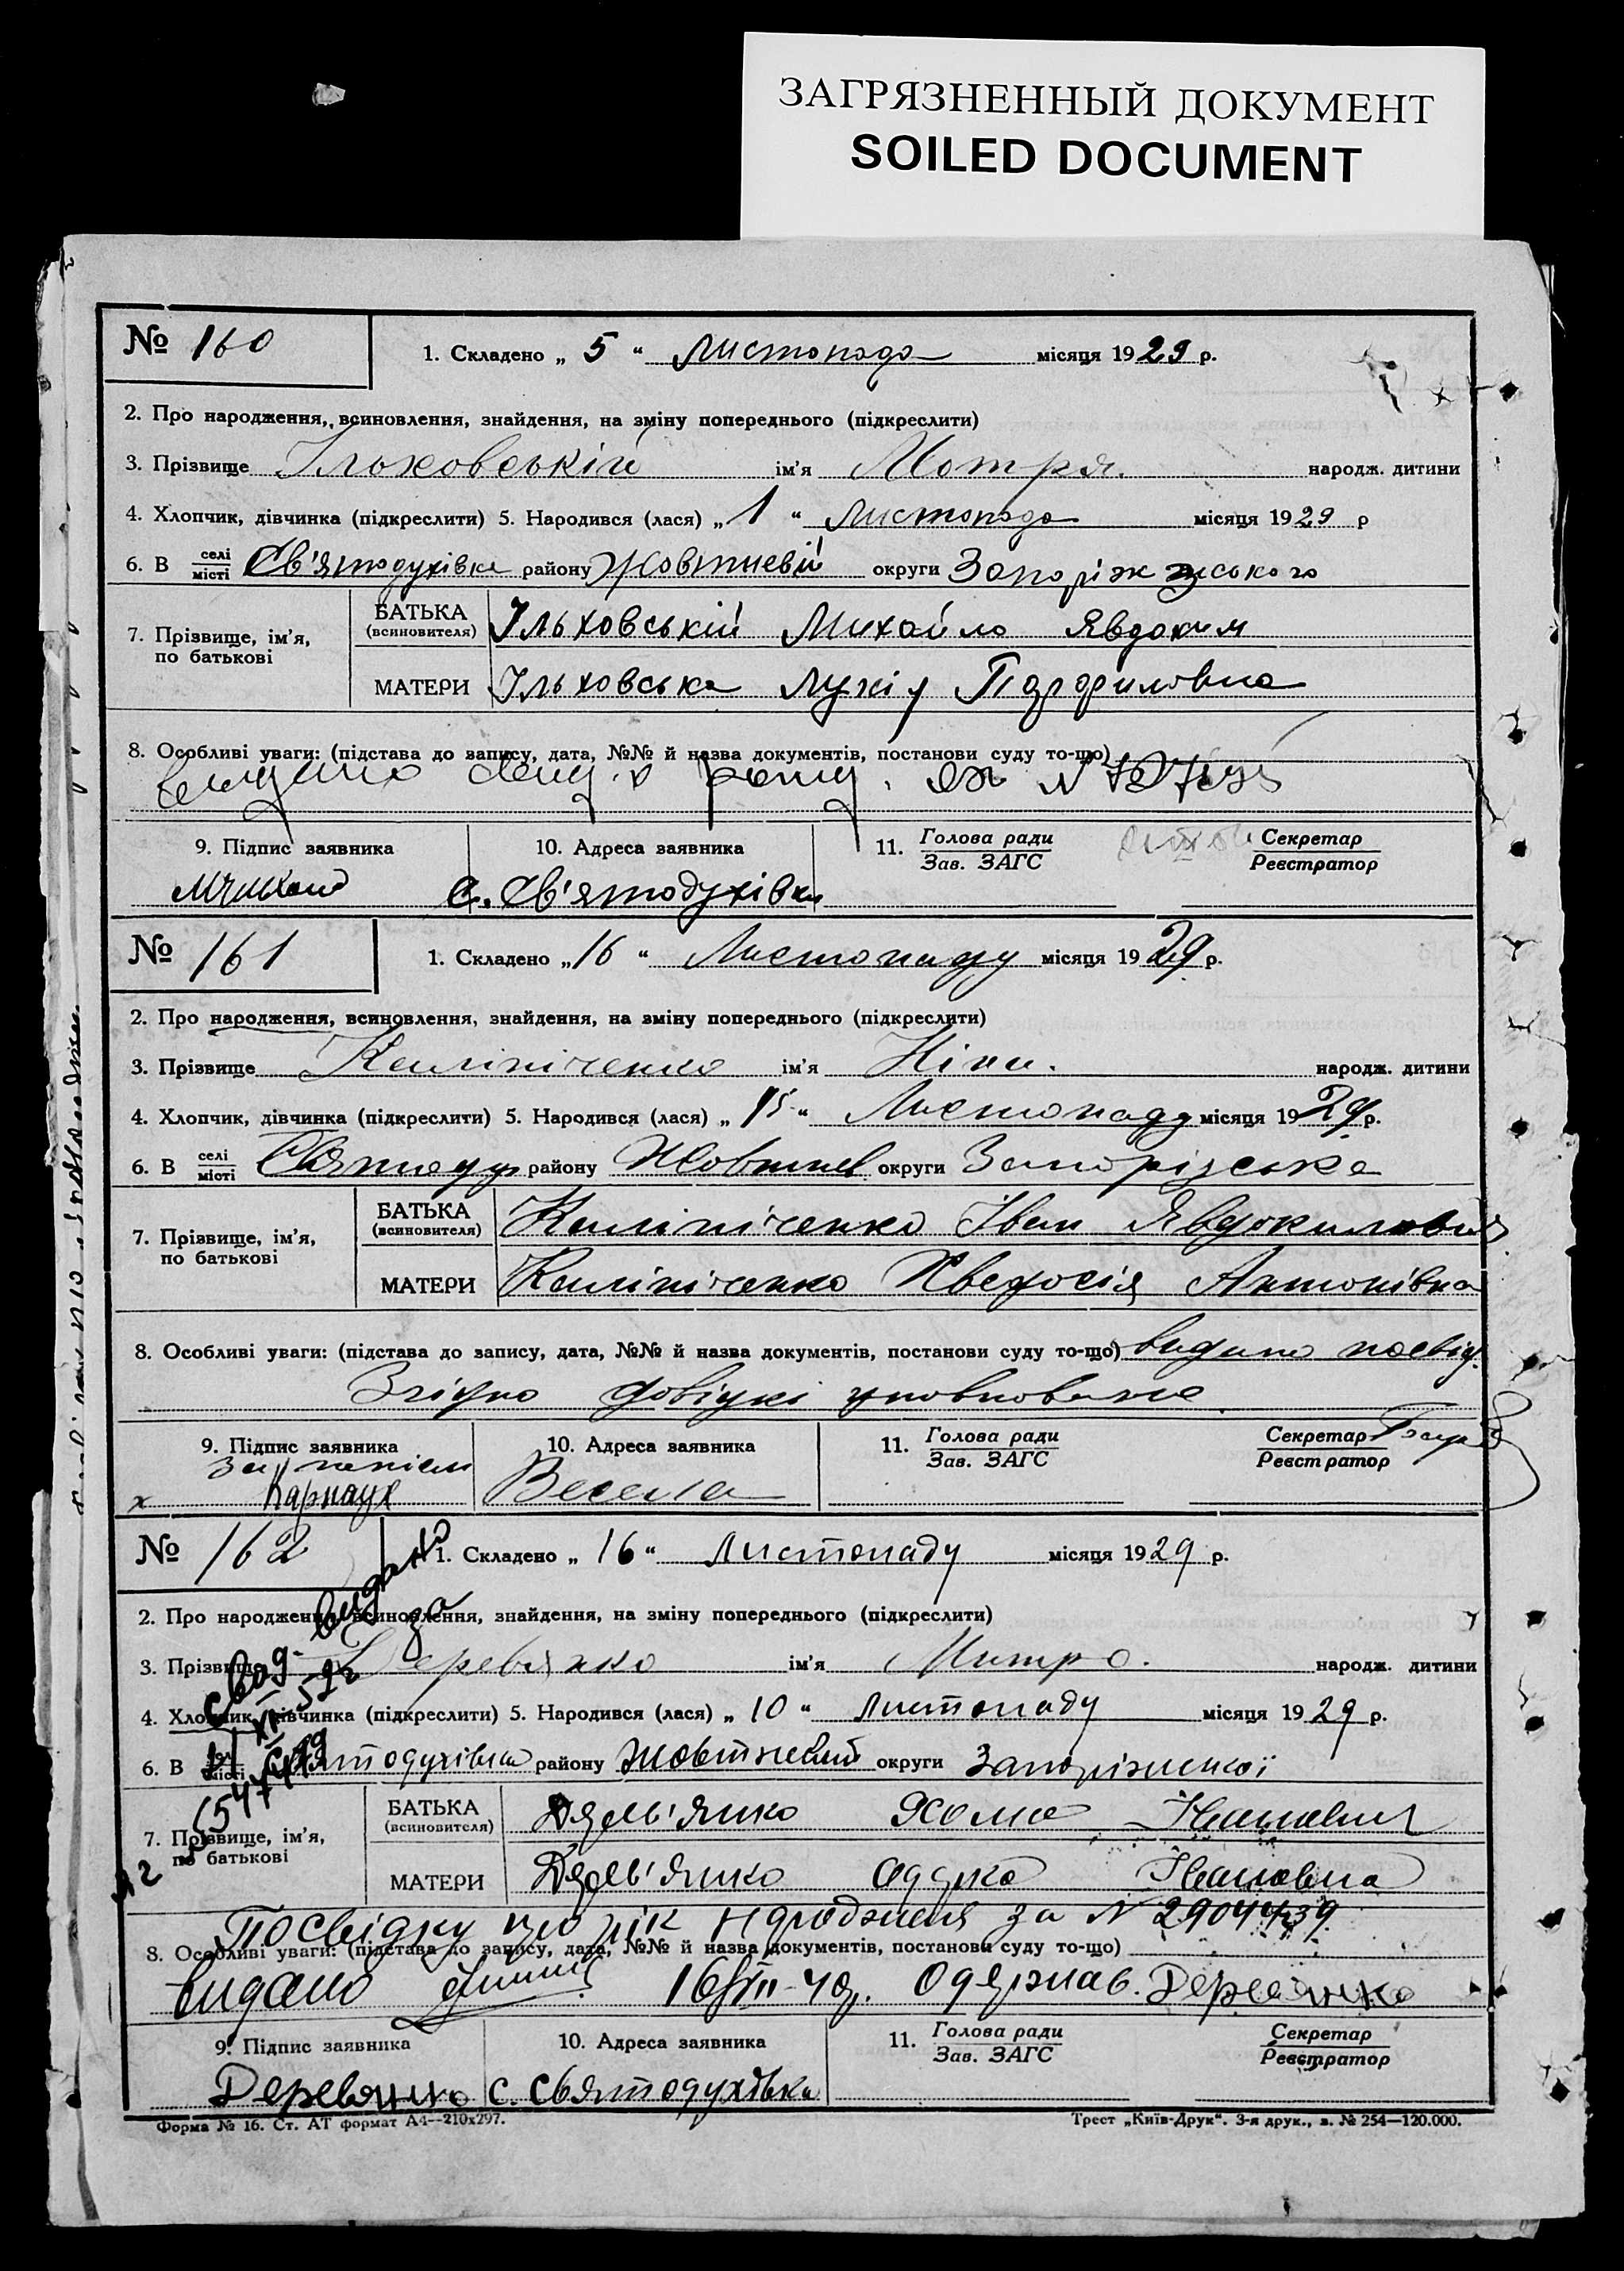 ЗАГРЯЗНЕННЫЙ ДОКУМЕНТ
SOILED DOCUMENT
№ 160
1. Складено „ 5 “ Листопада місяця 1929 р.
2. Про народження, всиновлення, знайдення, на зміну попереднього (підкреслити)
3. Прізвище Ільховській ім'я Мотря. народж. дитини
4. Хлопчик, дівчинка (підкреслити) 5. Народився (лася) „ 1 “ Листопада місяця 1929 р
6. В селі/місті Св'ятодухівка району Жовтневій округи
7. Прізвище, ім'я, по батькові
БАТЬКА (всиновителя) Ільховській Михайло Явдоким
МАТЕРИ Ільховська
8. Особливі уваги: (підстава до запису, дата, №№ й назва документів, постанови суду то-що)
9. Підпис заявника 10. Адреса заявника 11. Голова ради/Зав. ЗАГС Секретар/Реєстратор
с. Св'ятодухівка
№ 161
1. Складено „ 16 “ Листопаду місяця 1929 р.
2. Про народження, всиновлення, знайдення, на зміну попереднього (підкреслити)
3. Прізвище Калініченко ім'я Ніна. народж. дитини
4. Хлопчик, дівчинка (підкреслити) 5. Народився (лася) „ 15 “ Листопаду місяця 1929 р.
6. В селі/місті Святодух району Жовтнев округи Запорізська
7. Прізвище, ім'я, по батькові
БАТЬКА (всиновителя) Калініченко Іван Явдокимович
МАТЕРИ Калініченко Хведосія Антонівна
8. Особливі уваги: (підстава до запису, дата, №№ й назва документів, постанови суду то-що) видано посвід.
Згідно довідкі
9. Підпис заявника 10. Адреса заявника 11. Голова ради/Зав. ЗАГС Секретар/Реєстратор
х Карнаух Весела
№ 162
1. Складено „ 16 “ Листопаду місяця 1929 р.
видано за
2. Про народження, всиновлення, знайдення, на зміну попереднього (підкреслити)
3. Прізвище Деревянко ім'я Митро. народж. дитини
4. Хлопчик, дівчинка (підкреслити) 5. Народився (лася) „ 10 “ Листопаду місяця 1929 р.
6. В селі/місті Святодухівка району Жовтневий округи
7. Прізвище, ім'я, по батькові
БАТЬКА (всиновителя) Хома Іванович
МАТЕРИ Івановна
Посвідку про рік народженя за № 2904439
8. Особливі уваги: (підстава до запису, дата, №№ й назва документів, постанови суду то-що)
видано Одержав. Деревянко
9. Підпис заявника 10. Адреса заявника 11. Голова ради/Зав. ЗАГС Секретар/Реєстратор
Деревянко с. Святодухівка
Форма № 16. Ст. АТ формат А4—210x297. Трест „Київ-Друк“. 3-я друк., з. № 254—120.000.